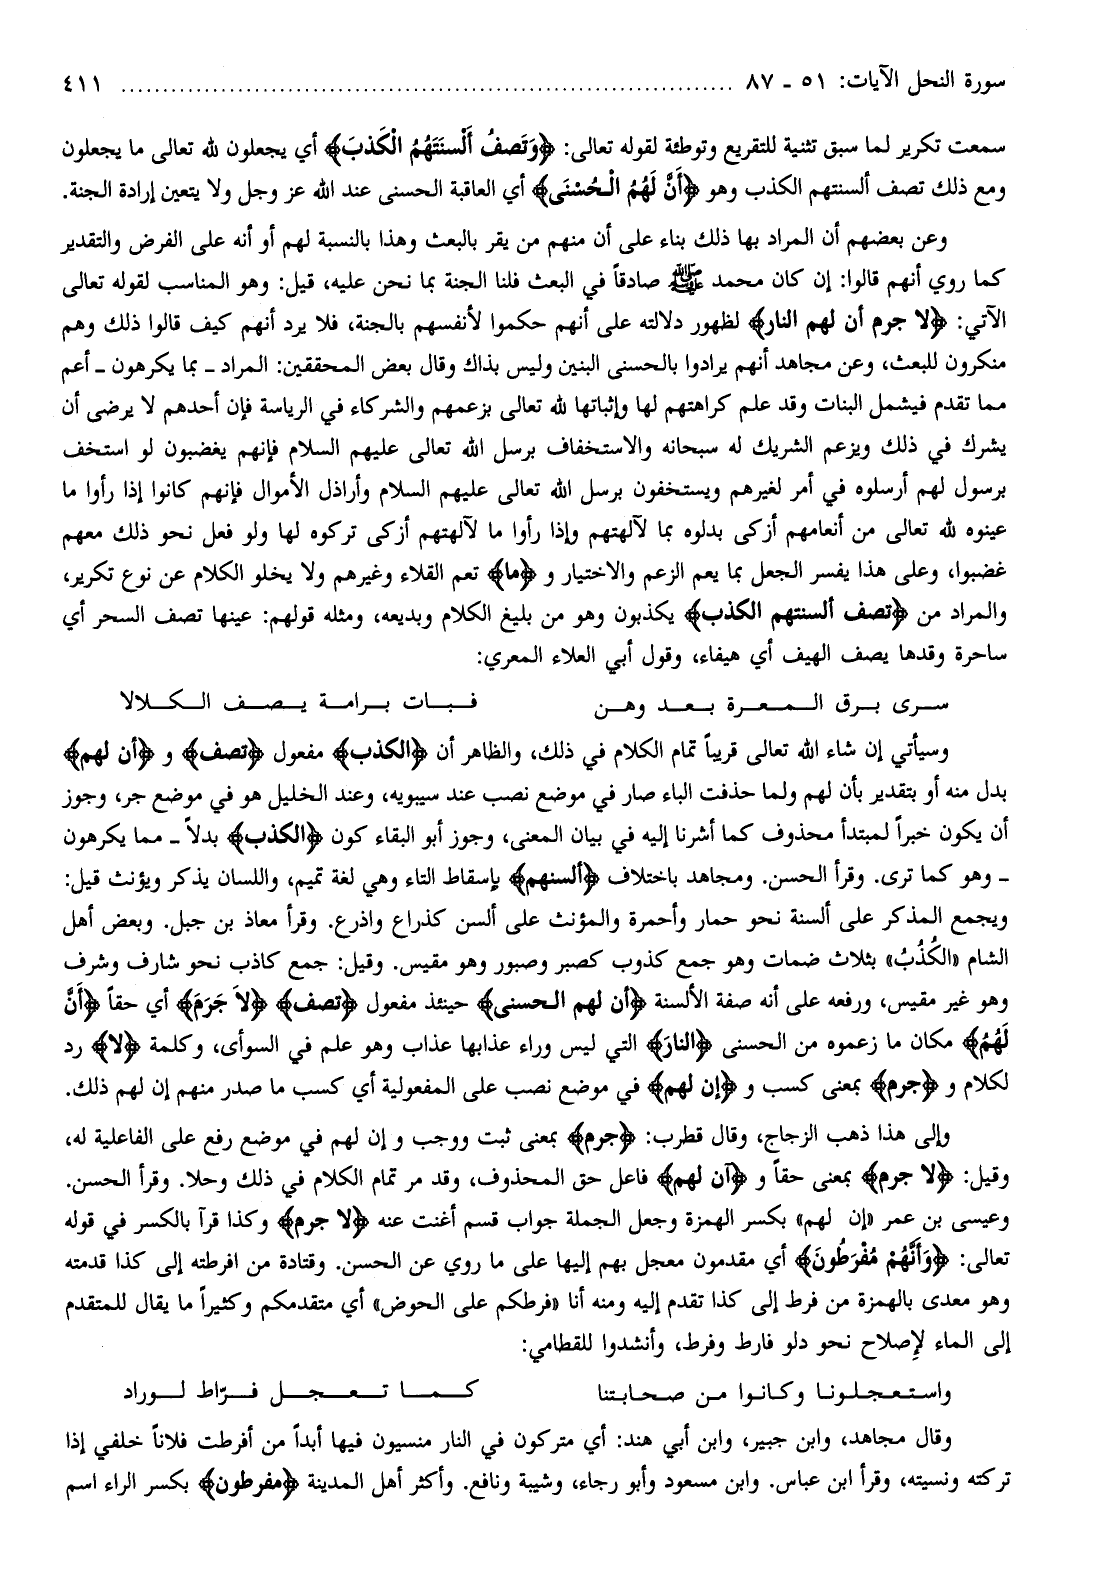 سورة النحل الآيات: ٥١ ـ ٨٧ ........................................................................ ٤١١
سمعت تكرير لما سبق تثنية للتقريع وتوطئة لقوله تعالى: ﴿وَتَصفُ أَلْسنَتَهُمُ الْكَذبَ﴾ أي يجعلون لله تعالى ما يجعلون
ومع ذلك تصف ألسنتهم الكذب وهو ﴿أَنَّ لَهُمُ الْحُسْنَى﴾ أي العاقبة الحسنى عند الله عز وجل ولا يتعين إرادة الجنة.
وعن بعضهم أن المراد بها ذلك بناء على أن منهم من يقر بالبعث وهذا بالنسبة لهم أو أنه على الفرض والتقدير
كما روي أنهم قالوا: إن كان محمد ﷺ صادقاً في البعث فلنا الجنة بما نحن عليه، قيل: وهو المناسب لقوله تعالى
الآتي: ﴿لا جرم أن لهم النار﴾ لظهور دلالته على أنهم حكموا لأنفسهم بالجنة، فلا يرد أنهم كيف قالوا ذلك وهم
منكرون للبعث، وعن مجاهد أنهم يرادوا بالحسنى البنين وليس بذاك وقال بعض المحققين: المراد ـ بما يكرهون ـ أعم
مما تقدم فيشمل البنات وقد علم كراهتهم لها وإثباتها لله تعالى بزعمهم والشركاء في الرياسة فإن أحدهم لا يرضى أن
يشرك في ذلك ويزعم الشريك له سبحانه والاستخفاف برسل الله تعالى عليهم السلام فإنهم يغضبون لو استخف
برسول لهم أرسلوه في أمر لغيرهم ويستخفون برسل الله تعالى عليهم السلام وأراذل الأموال فإنهم كانوا إذا رأوا ما
عينوه لله تعالى من أنعامهم أزكى بدلوه بما لآلهتهم وإذا رأوا ما لآلهتهم أزكى تركوه لها ولو فعل نحو ذلك معهم
غضبوا، وعلى هذا يفسر الجعل بما يعم الزعم والاختيار و ﴿ما﴾ تعم القلاء وغيرهم ولا يخلو الكلام عن نوع تكرير،
والمراد من ﴿تصف ألسنتهم الكذب﴾ يكذبون وهو من بليغ الكلام وبديعه، ومثله قولهم: عينها تصف السحر أي
ساحرة وقدها يصف الهيف أي هيفاء، وقول أبي العلاء المعري:
سرى برق المعرة بعد وهن فبات برامة يصف الكلالا
وسيأتي إن شاء الله تعالى قريباً تمام الكلام في ذلك، والظاهر أن ﴿الكذب﴾ مفعول ﴿تصف﴾ و ﴿أن لهم﴾
بدل منه أو بتقدير بأن لهم ولما حذفت الباء صار في موضع نصب عند سيبويه، وعند الخليل هو في موضع جر، وجوز
أن يكون خبراً لمبتدأ محذوف كما أشرنا إليه في بيان المعنى، وجوز أبو البقاء كون ﴿الكذب﴾ بدلاً ـ مما يكرهون
ـ وهو كما ترى. وقرأ الحسن. ومجاهد باختلاف ﴿ألسنهم﴾ بإسقاط التاء وهي لغة تميم، واللسان يذكر ويؤنث قيل:
ويجمع المذكر على ألسنة نحو حمار وأحمرة والمؤنث على ألسن كذراع واذرع. وقرأ معاذ بن جبل. وبعض أهل
الشام «الكُذُبُ» بثلاث ضمات وهو جمع كذوب كصبر وصبور وهو مقيس. وقيل: جمع كاذب نحو شارف وشرف
وهو غير مقيس، ورفعه على أنه صفة الألسنة ﴿أن لهم الحسنى﴾ حينئذ مفعول ﴿تصف﴾ ﴿لاَ جَرَمَ﴾ أي حقاً ﴿أَنَّ
لَهُمُ﴾ مكان ما زعموه من الحسنى ﴿النارَ﴾ التي ليس وراء عذابها عذاب وهو علم في السوأى، وكلمة ﴿لا﴾ رد
لكلام و ﴿جرم﴾ بمعنى كسب و ﴿إن لهم﴾ في موضع نصب على المفعولية أي كسب ما صدر منهم إن لهم ذلك.
وإلى هذا ذهب الزجاج، وقال قطرب: ﴿جرم﴾ بمعنى ثبت ووجب و إن لهم في موضع رفع على الفاعلية له،
وقيل: ﴿لا جرم﴾ بمعنى حقاً و ﴿آن لهم﴾ فاعل حق المحذوف، وقد مر تمام الكلام في ذلك وحلا. وقرأ الحسن.
وعيسى بن عمر «إن لهم» بكسر الهمزة وجعل الجملة جواب قسم أغنت عنه ﴿لا جرم﴾ وكذا قرآ بالكسر في قوله
تعالى: ﴿وَأَنَّهُمْ مُفْرَطُونَ﴾ أي مقدمون معجل بهم إليها على ما روي عن الحسن. وقتادة من افرطته إلى كذا قدمته
وهو معدى بالهمزة من فرط إلى كذا تقدم إليه ومنه أنا «فرطكم على الحوض» أي متقدمكم وكثيراً ما يقال للمتقدم
إلى الماء لإصلاح نحو دلو فارط وفرط، وأنشدوا للقطامي:
واستعجلونا وكانوا من صحابتنا كما تعجل فرّاط لوراد
وقال مجاهد، وابن جبير، وابن أبي هند: أي متركون في النار منسيون فيها أبداً من أفرطت فلاناً خلفي إذا
تركته ونسيته، وقرأ ابن عباس. وابن مسعود وأبو رجاء، وشيبة ونافع. وأكثر أهل المدينة ﴿مفرطون﴾ بكسر الراء اسم